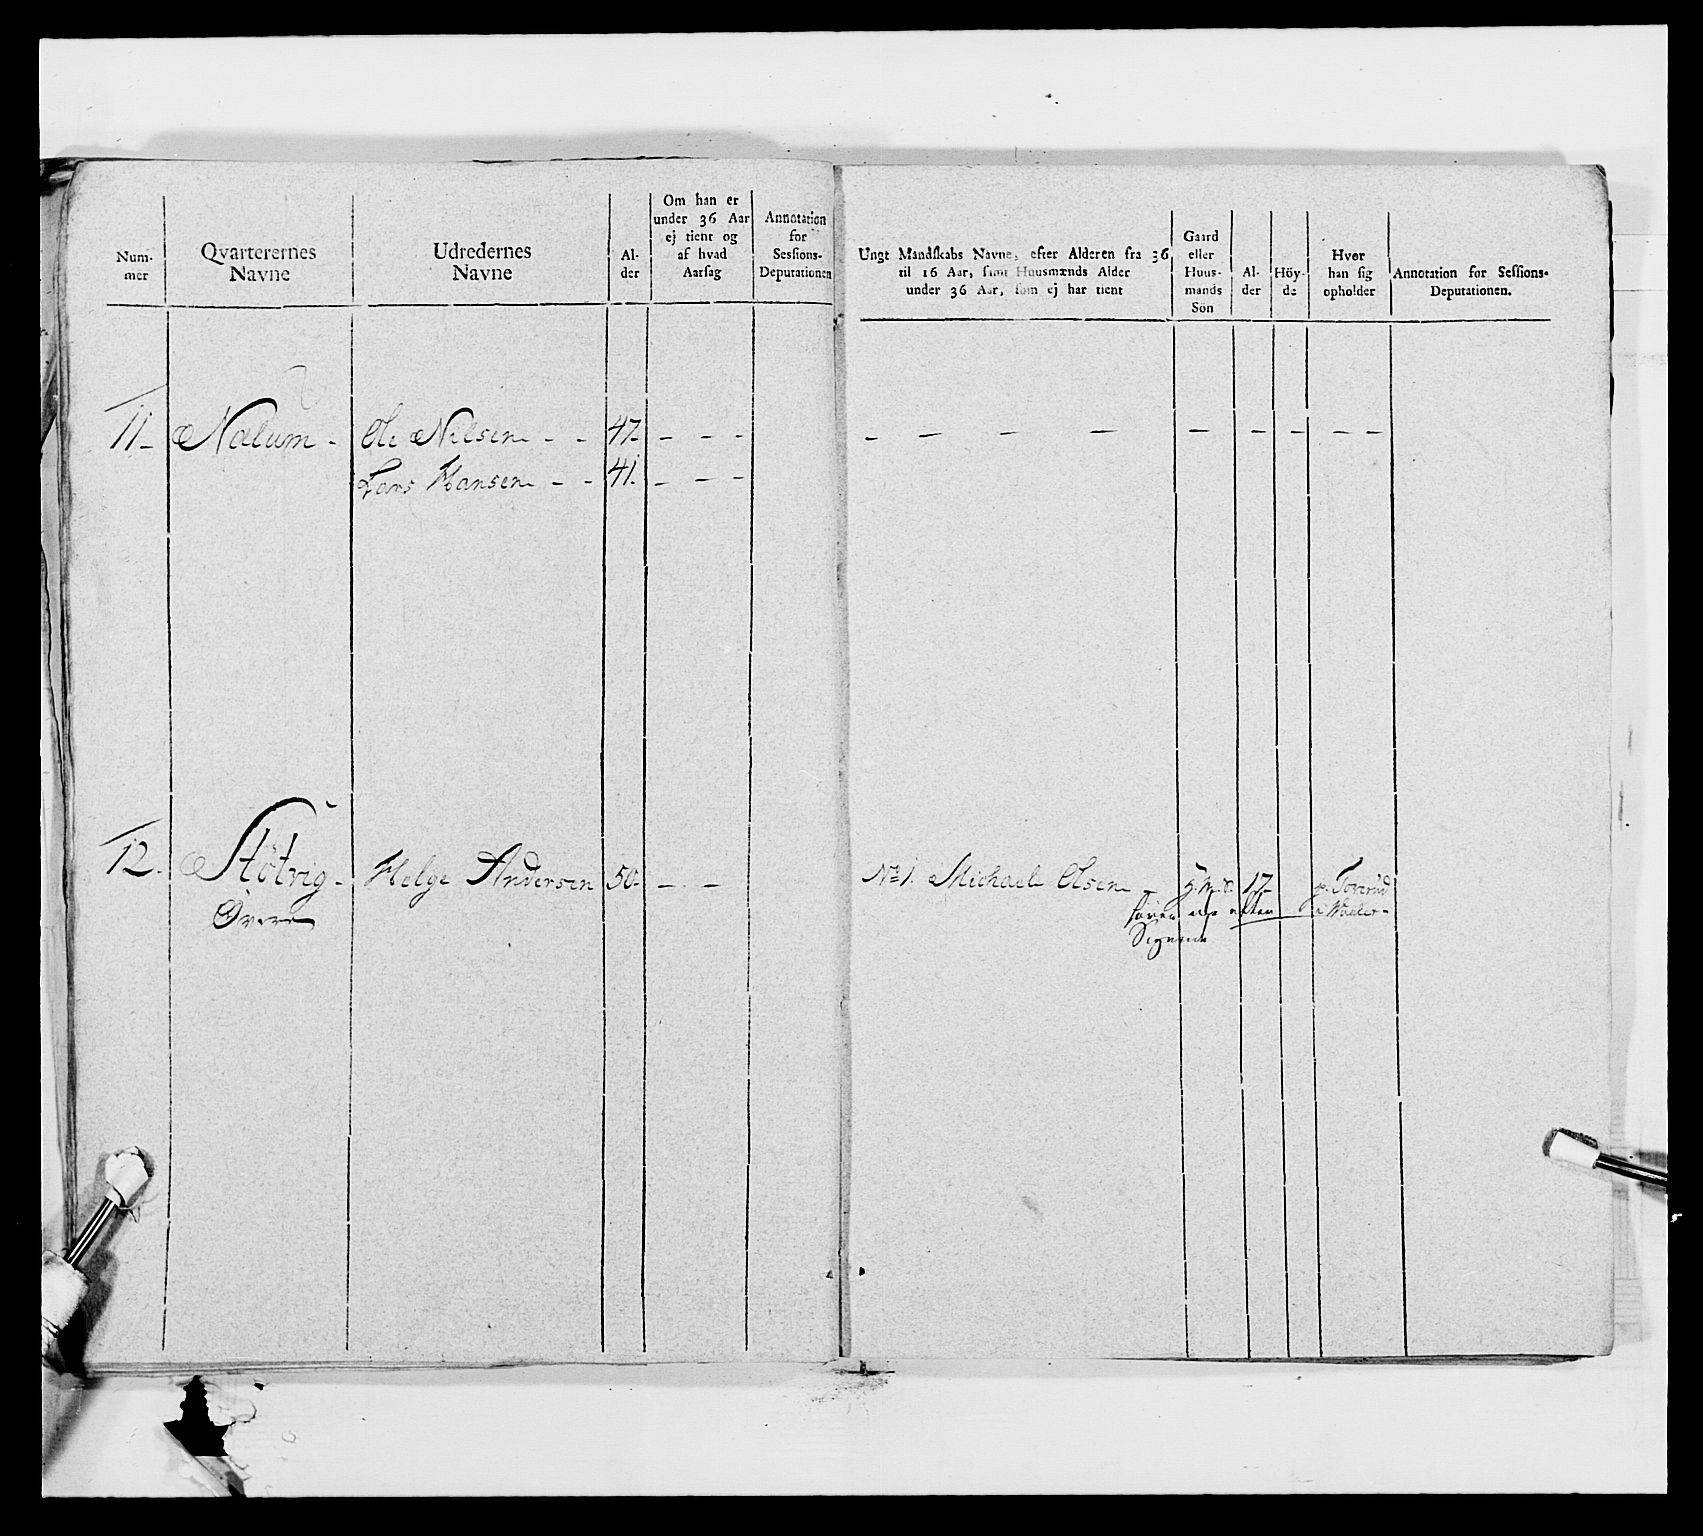 Num-
mer
Qvarterernes
Navne
Udredernes
Navne
Al-
der
Om han er
under 36 Aar
ej tient og
af hvad
Aarsag
Annotation
for
Sessions-
Deputationen
Ungt Mandskabs Navne, efter Alderen fra 36
til 16 Aar, samt Huusmænds Alder
under 36 Aar, som ej har tient
Gaard
eller
Huus-
mands
Søn
Al-
der
Höy-
de
Hvor
han sig
opholder
Annotation for Sessions-
Deputationen.
11 - Nalum - Ole Nilsen - - 47 - - - -
Lars Hansen - - 41 - - -
12 - Stötvig - Helge Andersen 50 - - - No 1. Michael Olsen - G. M. S. 17 - p. Toverud
Øvere efter i Waaler -